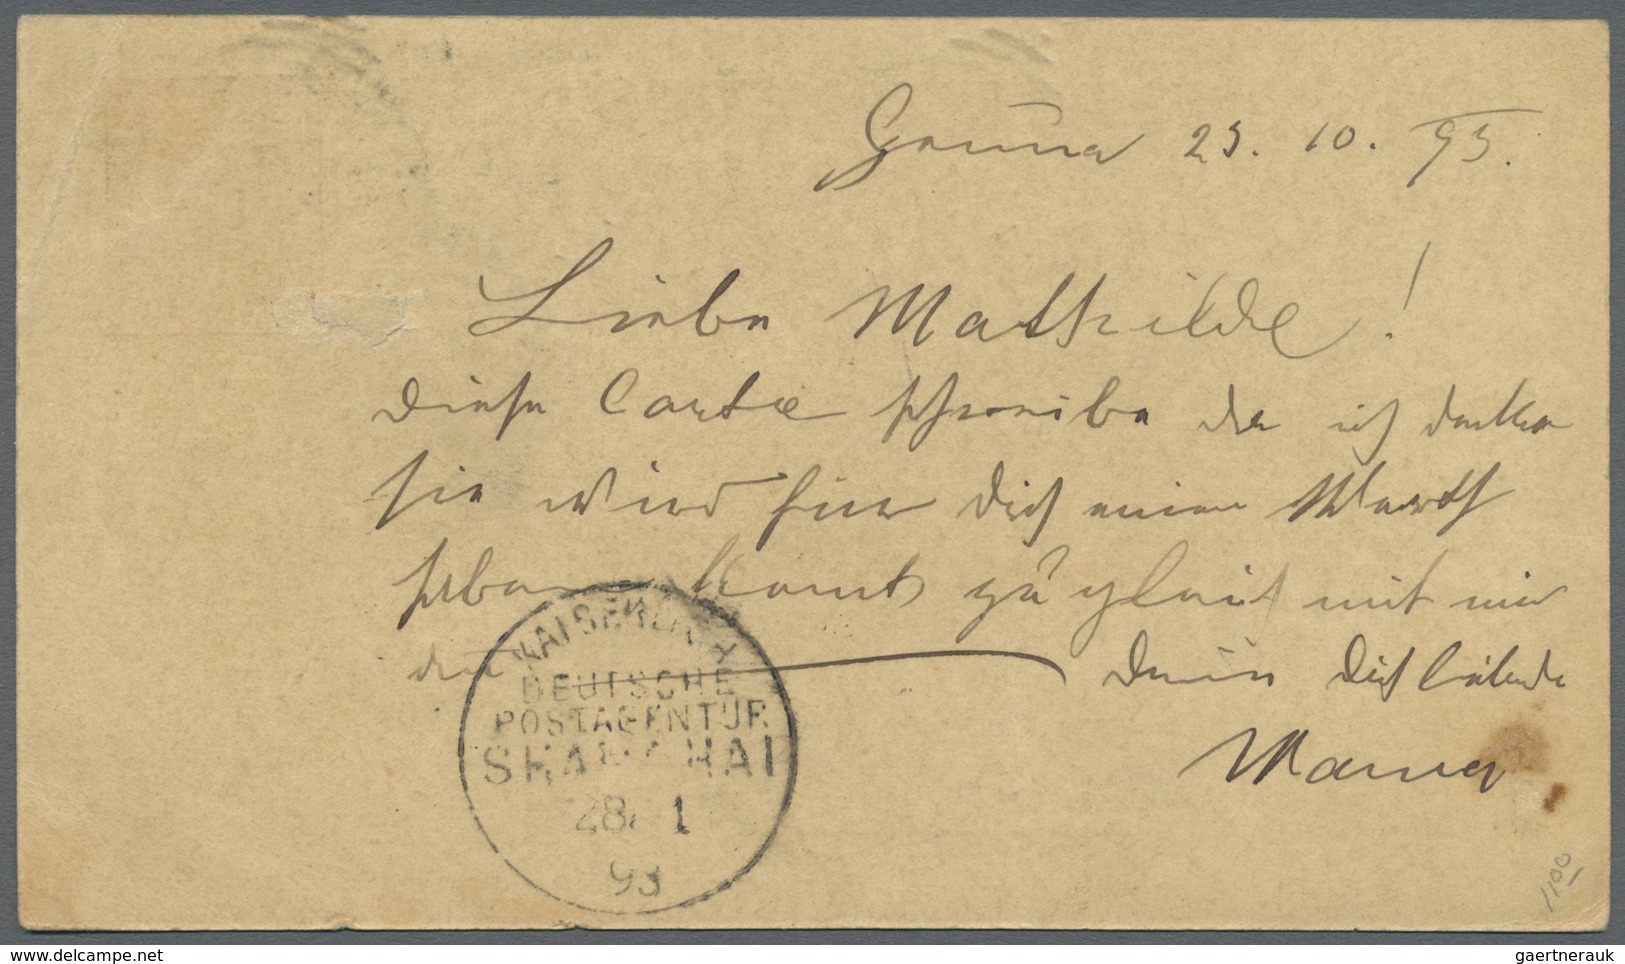 23. 10. 93.
Liebe Mathilde!
diese Carte schreibe da ich denke
sie wird für Dich einen Werth
haben kommt zugleich mit mir
Deine Dich liebende
Mama
KAISERLICH
DEUTSCHE
POSTAGENTUR
SHANGHAI
28 1
93
1100
delcampe.net
gaertnerauk